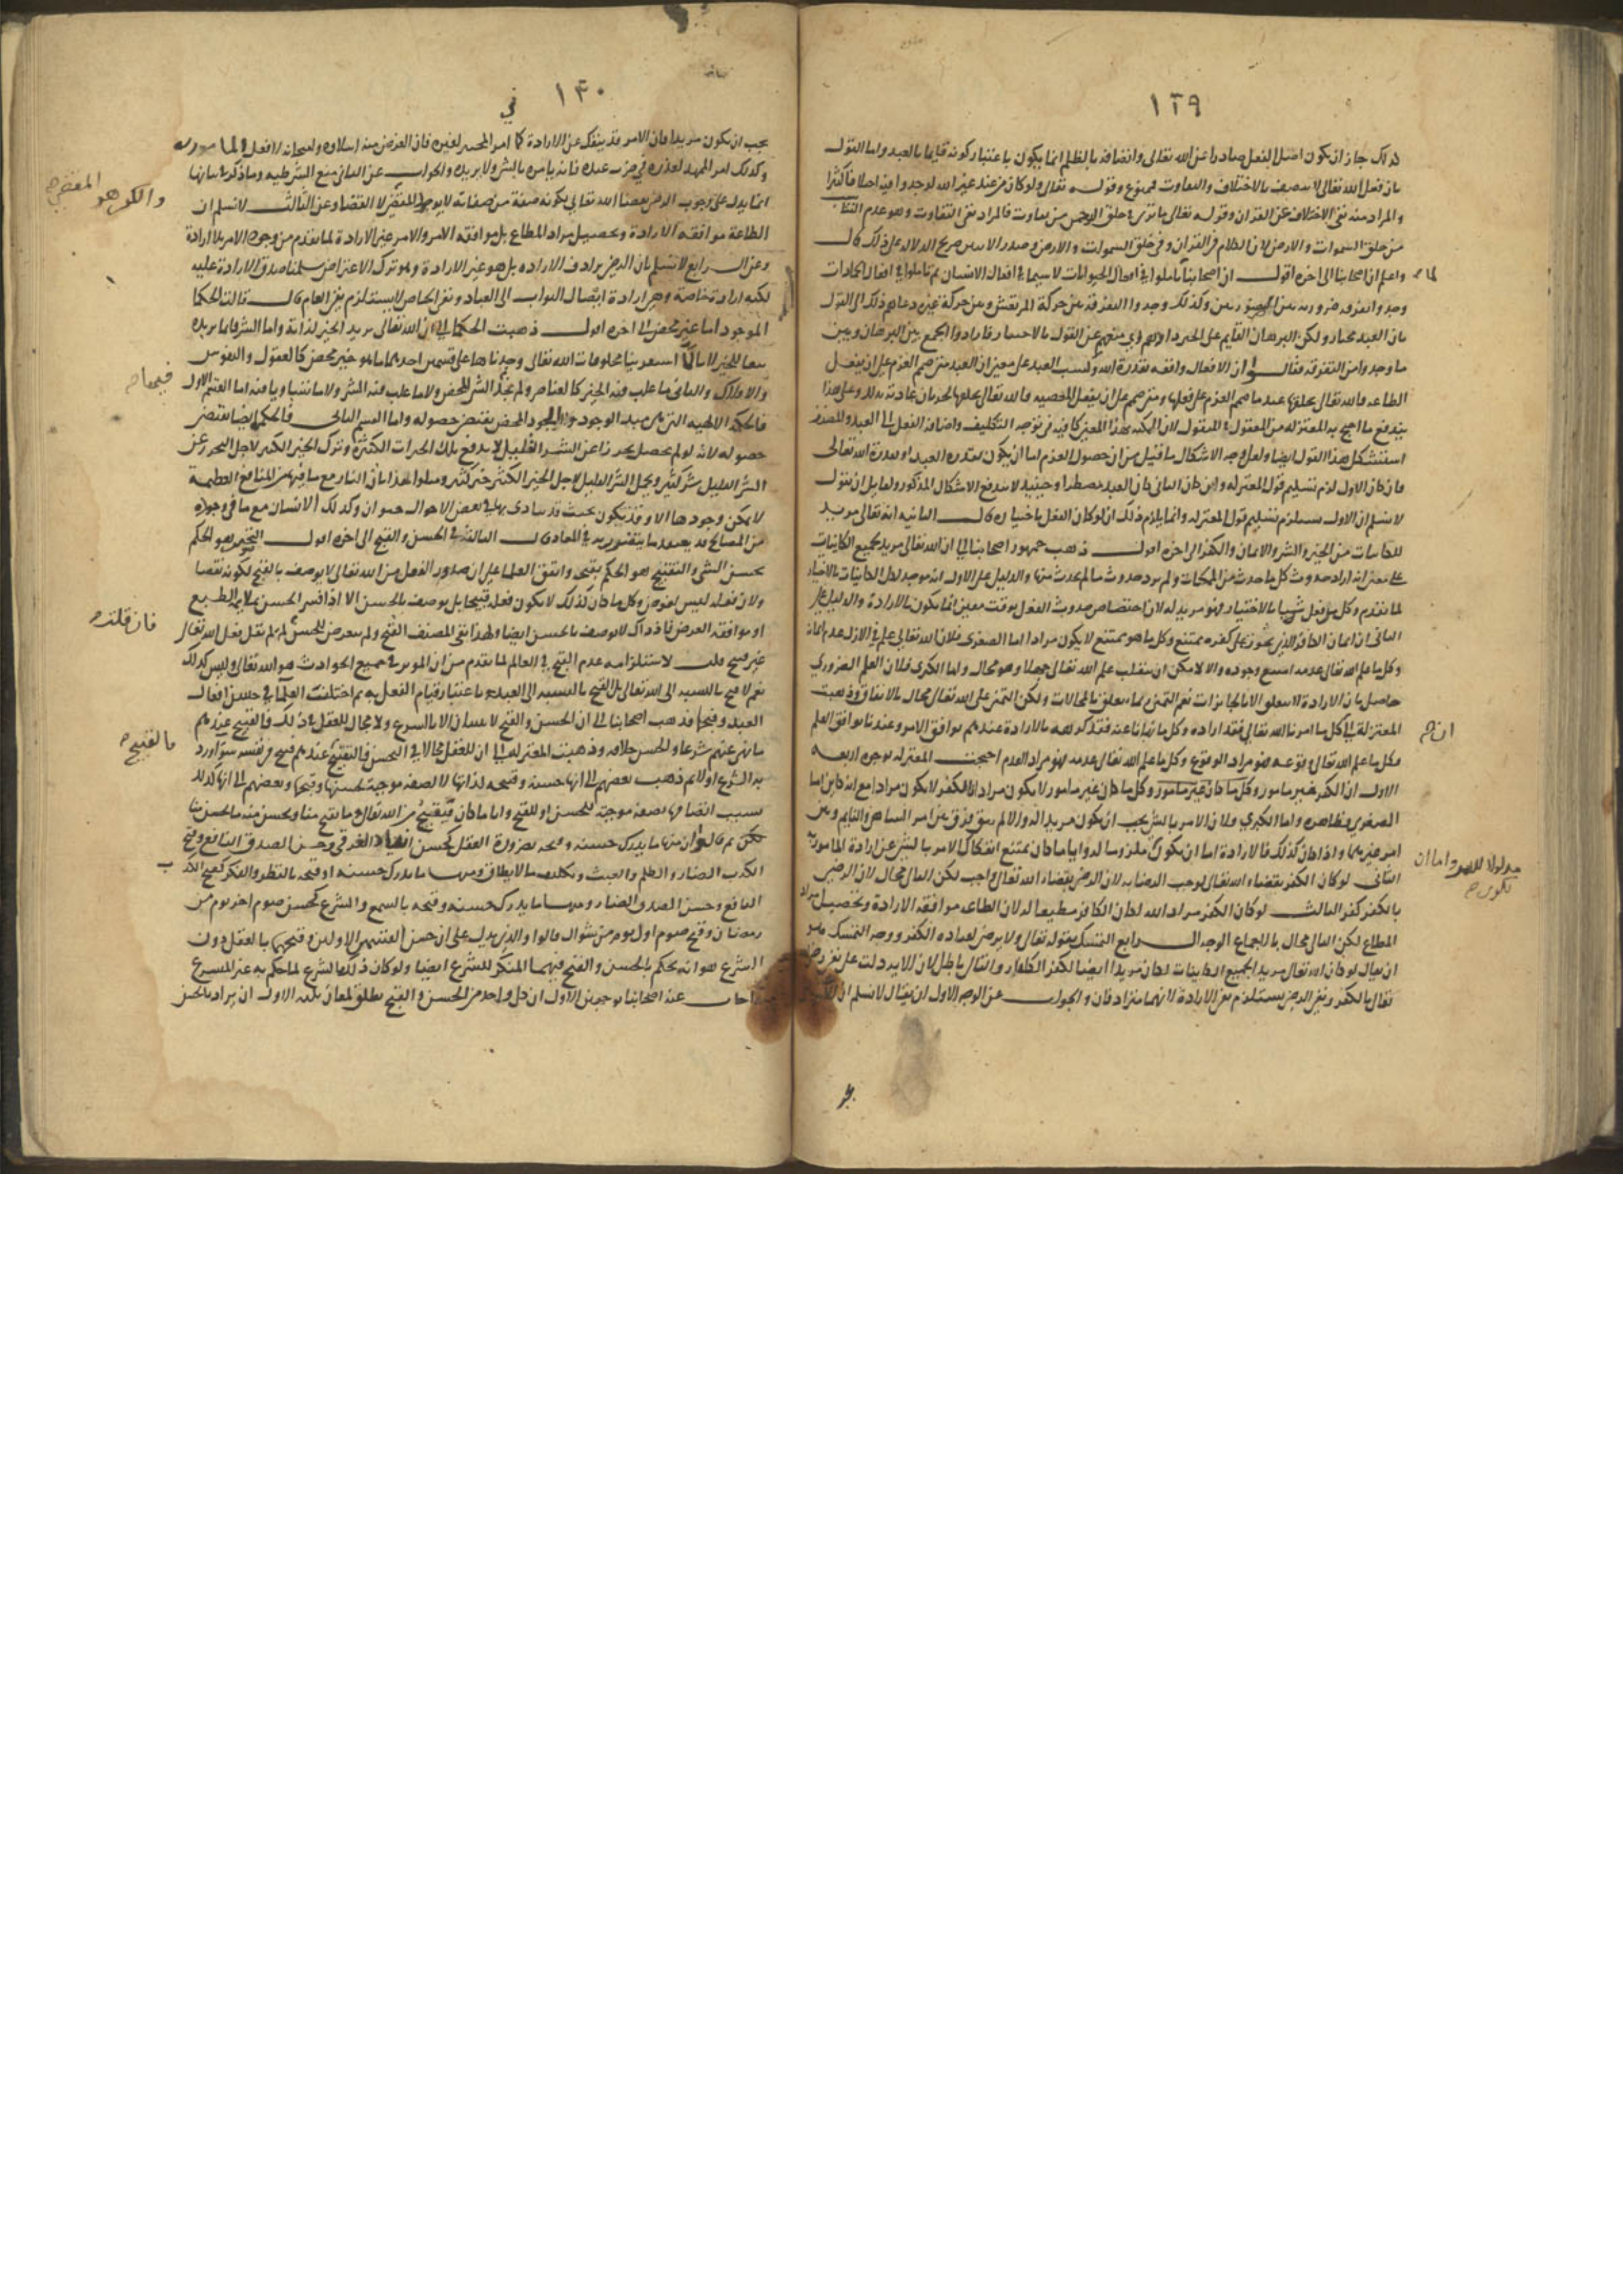 ١٢٩
ذاك جاز ان يكون اصل الفعل صادرا عن الله تعالى واتصافه بالظلم انما يكون باعتبار كونه قايما بالعبد واما القول
بان فعل الله تعالى لا يتصف بالاختلاف والتفاوت فممنوع وقوله تعالى ولو كان من عند غير الله لوجدوا فيه اختلافا كثيرا
والمراد منه نفى الاختلاف عن القران وقوله تعالى ما ترى في خلق الرحمن من تفاوت فالمراد نفى التفاوت وهو عدم
من خلق السموات والارض لان الكلام في القرآن وفي خلق السموات والارض
واعلم ان اصحابنا الى اخره اقول ان اصحابنا لما تاملوا في افعال الحيوانات لا سيما في افعال الانسان ثم تاملوا في افعال الجمادات
وجدوا تفرقة ضرورية بين وكذلك وجدوا التفرقة بين حركة المرتعش وبين حركة غيره دعاهم ذلك الى القول
بان العبد مختار ولكن البرهان القايم على الجبر منعهم عن القول بالاختيار فارادوا الجمع بين البرهان وبين
ما وجدوا من التفرقة فقالوا ان الافعال واقعة بقدرة الله وكسب العبد على معنى ان العبد متى صمم العزم على ان يفعل
الطاعة فالله تعالى يخلقها عند ما صمم العزم على فعلها ومتى صمم على ان يفعل المعصية فالله تعالى يخلقها لجريان عادته بذلك وعلى هذا
يندفع ما احتج به المعتزلة من المعقول والمنقول لان المكنة بهذا المعنى كافية في توجه التكليف واضافة الفعل الى العبد والمصنف
استشكل هذا القول ايضا ولعل وجه الاشكال ما قيل من ان حصول العزم اما ان يكون بقدرة العبد او بقدرة الله تعالى
فان كان الاول لزم تسليم قول المعتزلة وان كان الثانى كان العبد مضطرا وحينئذ لا يندفع الاشكال المذكور ولقايل ان يقول
لا نسلم ان الاول يستلزم تسليم قول المعتزلة وانما يلزم ذلك ان لو كان الفعل باختياره قال الثانية انه تعالى مريد
للكاينات من الخير والشر والايمان والكفر الى اخره اقول ذهب جمهور اصحابنا الى ان الله تعالى مريد لجميع الكاينات
على معنى انه اراد حدوث كل ما حدث من الممكنات ولم يرد حدوث ما لم يحدث منها والدليل على الاول انه موجد لكل الكاينات بالاختيار
لما تقدم وكل من فعل شيئا بالاختيار فهو مريد له لان اختصاص حدوث الفعل بوقت معين انما يكون بالارادة والدليل على
الثانى ان ايمان الكافر الذى يموت على كفره ممتنع وكل ما هو ممتنع لا يكون مرادا اما الصغرى فلان الله تعالى علم في الازل عدم ايمانه
وكل ما علم الله تعالى عدمه امتنع وجوده والا لامكن ان ينقلب علم الله تعالى جهلا وهو محال واما الكبرى فلان العلم الضرورى
حاصل بان الارادة لا تتعلق الا بالجايزات نعم التمنى ربما يتعلق بالمحالات ولكن التمنى على الله تعالى محال بالاتفاق وذهبت
المعتزلة الى كل ما امرنا الله تعالى فقد اراده وكل ما نهانا عنه فقد كرهه فالارادة عندهم توافق الامر وعندنا توافق العلم
فكل ما علم الله تعالى وقوعه فهو مراد الوقوع وكل ما علم الله تعالى عدمه فهو مراد العدم احتجت المعتزلة بوجوه اربعة
الاول ان الكفر غير مامور وكل ما كان غير مامور لا يكون مرادا فالكفر لا يكون مرادا
الصغرى فظاهرة واما الكبرى فلان الامر بالشى يجب ان يكون مريدا له والا لم يبق فرق بين امر الساهى والنايم وبين
امر غيرهما واذا كان كذلك فالارادة اما ان يكون ملزوما له وايا ما كان يمتنع انفكاك الامر بالشى عن ارادة المامور به
الثانى لو كان الكفر بقضاء الله تعالى لوجب الرضا به لان الرضى بقضاء الله تعالى واجب لكن التالى محال لان الرضى
بالكفر كفر الثالث لو كان الكفر مراد الله لكان الكافر مطيعا له لان الطاعة موافقة الارادة وتحصيل مراد
المطاع لكن التالى محال بالاجماع الوجه الرابع التمسك بقوله تعالى ولا يرضى لعباده الكفر ووجه التمسك هو
ان يقال لو كان الله تعالى مريدا لجميع الكاينات لكان مريدا ايضا لكفر الكافر والتالى باطل لان الاية دلت على نفى رضاه
تعالى بالكفر ونفى الرضى يستلزم نفى الارادة لانهما مترادفان والجواب عن الوجه الاول ان يقال لا نسلم ان الامر
لما
ان
مدلولا للامر واما ان يكون
١٣٠
في
يجب ان يكون مريدا فان الامر قد ينفك عن الارادة كما امر المختبر لغيره فان الغرض منه ابتلاوه وامتحانه لا فعل المامور به
وكذلك امر الممهد لعذره في ضرب عبده فانه يامره بالشى ولا يريده والجواب عن الثانى منع الشرطية وما ذكر في بيانها
انما يدل على وجوب الرضى بقضا الله تعالى لكونه صفة من صفاته لا بوجود المقضى لا القضا وعن الثالث لا نسلم ان
الطاعة موافقة الارادة وتحصيل مراد المطاع بل موافقة الامر والامر غير الارادة لما تقدم من وجود الامر بلا ارادة
وعن الرابع لا نسلم بان الرضى يرادف الارادة بل هو غير الارادة وهو ترك الاعتراض سلمنا صدق الارادة عليه
لكنه ارادة خاصة وهى ارادة ايصال الثواب الى العباد ونفى الخاص لا يستلزم نفى العام قال قالت الحكما
الموجود اما خير محض الى اخره اقول ذهبت الحكما الى ان الله تعالى يريد الخير لذاته واما الشر فانما يريده
تبعا للخير لانا لما استقرينا مخلوقات الله تعالى وجدناها على قسمين احدهما ما هو خير محض كالعقول والنفوس
والافلاك والثانى ما غلب فيه الخير كالعناصر ولم نجد الشر المحض ولا ما غلب فيه الشر ولا ما تساويا فيه اما القسم الاول
فالحكمة الالهية التى هى مبدا الوجود والجود المحض يقتضى حصوله واما القسم الثانى فالحكمة ايضا تقتضى
حصوله لانه لو لم يحصل تحرزا عن الشر القليل لاندفع تلك الخيرات الكثيرة وترك الخير الكثير لاجل التحرز عن
الشر القليل شر كثير وتحمل الشر القليل لاجل الخير الكثير خير كثير ومثلوا هذا بان النار مع ما فيها من المنافع العظيمة
لا يمكن وجودها الا وقد يكون بحيث قد يتاذى بها في بعض الاحوال حيوان وكذلك الانسان مع ما في وجوده
من المصالح قد يعتقد ما يتضرر به في المعاد قال الثالثة في الحسن والقبح الى اخره اقول التحسين هو الحكم
بحسن الشى والتقبيح هو الحكم بقبحه واتفق العلما على ان صدور الفعل من الله تعالى لا يوصف بالقبح لكونه نقصا
ولان فعله ليس لغرض وكل ما كان كذلك لا يكون فعله قبيحا بل يوصف بالحسن الا اذا فسر الحسن بملايمة الطبع
او موافقة الغرض فاذ ذاك لا يوصف بالحسن ايضا ولهذا نفى المصنف القبح ولم يتعرض للحسن لم لم تقل فعل الله تعالى
غير قبيح قلت لاستلزامه عدم القبح في العالم لما تقدم من ان الموثر في جميع الحوادث هو الله تعالى وليس كذلك
نعم لا قبح بالنسبة الى الله تعالى بل القبح بالنسبة الى العبد باعتبار قيام الفعل به ثم اختلفت العلما في حسن افعال
العبد وقبحها فذهب اصحابنا الى ان الحسن والقبح لا يثبتان الا بالشرع ولا مجال للعقل في ذلك فالقبيح عندهم
ما نهى عنه شرعا والحسن خلافه وذهبت المعتزلة الى ان للعقل مجالا في الحسن فالقبيح عندهم قبيح في نفسه سوا ورد
به الشرع او لا ثم ذهب بعضهم الى انها حسنة وقبيحة لذاتها لا لصفة موجبة لحسنها وقبحها وبعضهم الى انها كذلك
بسبب اتصافها بصفة موجبة للحسن او للقبح وايا ما كان فيقبح من الله تعالى ما يقبح منا ويحسن منه ما يحسن منا
لكن ثم قالوا ان منها ما يدرك حسنه وقبحه بضرورة العقل كحسن انقاذ الغرقى وحسن الصدق النافع وقبح
الكذب الضار والظلم والعبث وتكليف ما لا يطاق ومنها ما يدرك حسنه او قبحه بالنظر والفكر كقبح الكذب
النافع وحسن الصدق الضار ومنها ما يدرك حسنه وقبحه بالسمع والشرع كحسن صوم اخر يوم من
رمضان وقبح صوم اول يوم من شوال قالوا والذى يدل على ان حسن القسمين الاولين وقبحهما بالعقل دون
الشرع هو انه يحكم بالحسن والقبح فيهما المنكر للشرع ايضا ولو كان ذلك بالشرع لما حكم به غير المتشرع
اجاب عنه اصحابنا بوجهين الاول ان كل واحد من الحسن والقبح يطلق لمعان ثلثة الاول ان يراد بالحسن
والكفر هو المقضى
فيهما
فان قلت
بالقبيح